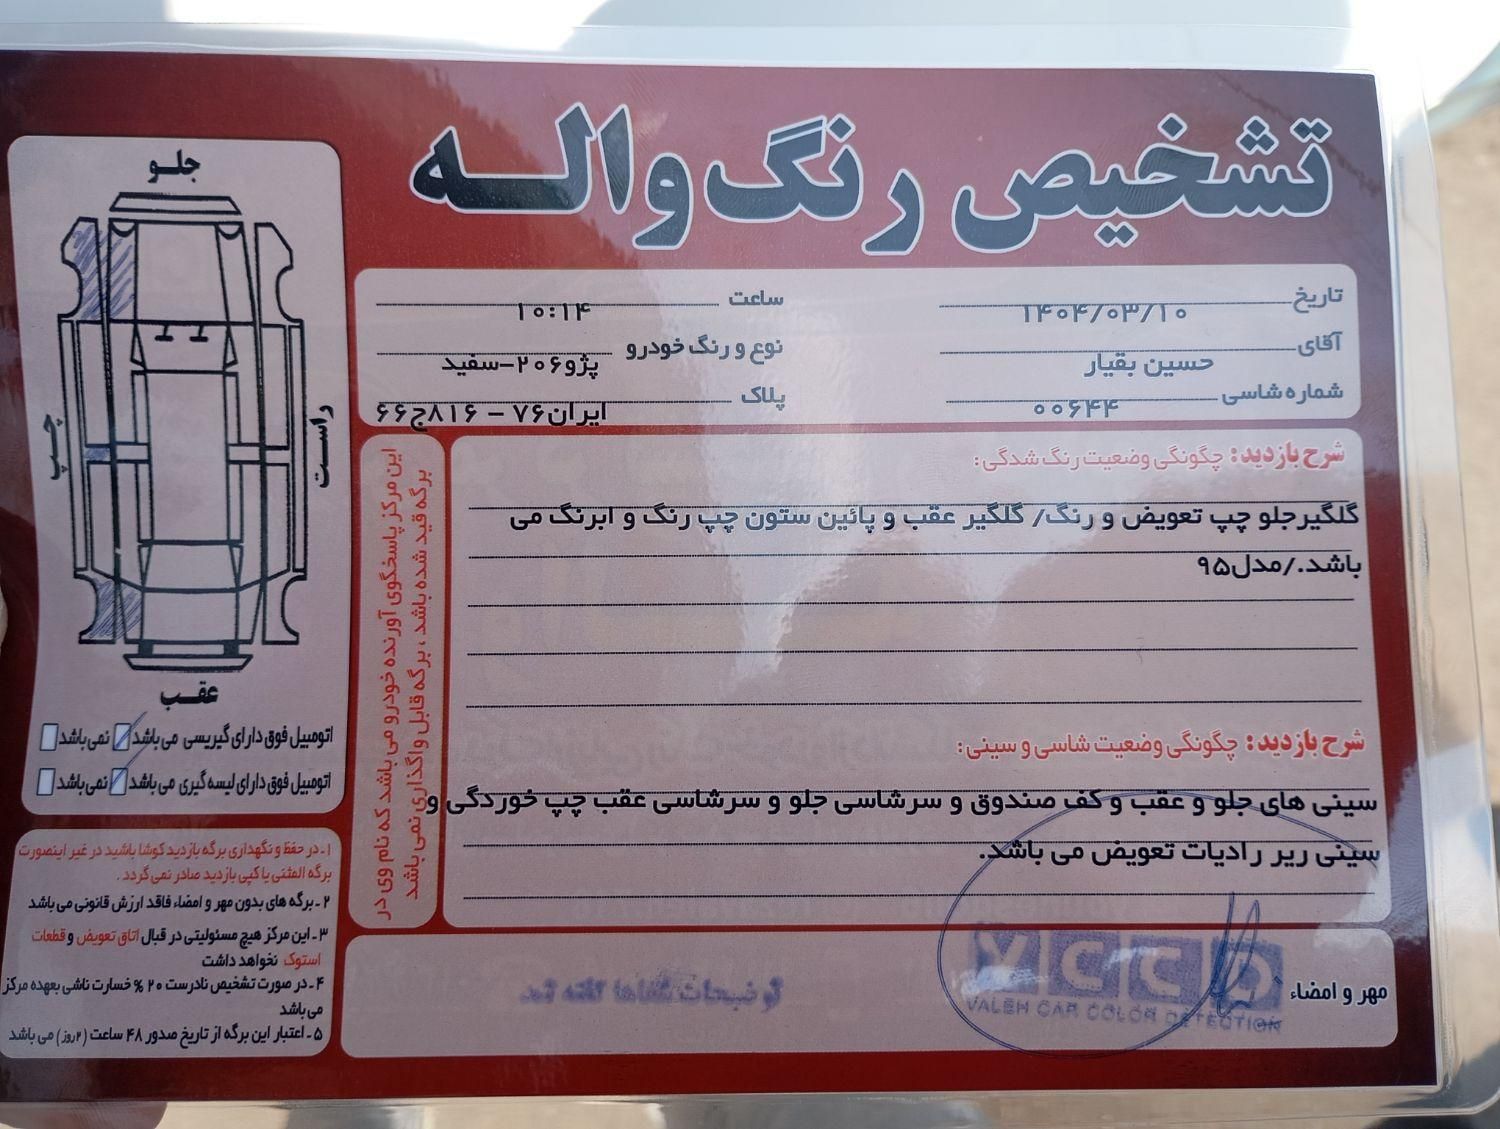 تشخیص رنگ واله
تاریخ ۱۴۰۴/۰۳/۱۰
ساعت ۱۰:۱۴
آقای حسین بقیار
نوع و رنگ خودرو پژو۲۰۶-سفید
شماره شاسی ۰۰۶۴۴
پلاک ایران۷۶ - ۸۱۶ج۶۶
شرح بازدید: چگونگی وضعیت رنگ شدگی:
گلگیرجلو چپ تعویض و رنگ/ گلگیر عقب و پائین ستون چپ رنگ و ابرنگ می
باشد./مدل۹۵
شرح بازدید: چگونگی وضعیت شاسی و سینی:
سینی های جلو و عقب و کف صندوق و سرشاسی جلو و سرشاسی عقب چپ خوردگی و
سینی ریر رادیات تعویض می باشد.
مهر و امضاء
VCCD
VALEH CAR COLOR DETECTION
این مرکز پاسخگوی آورنده خودرو می باشد که نام وی در
برگه قید شده باشد ، برگه قابل واگذاری نمی باشد
جلو
چپ
راست
عقب
اتومبیل فوق دارای گیریسی می باشد نمی باشد
اتومبیل فوق دارای لیسه گیری می باشد نمی باشد
۱ـ در حفظ و نگهداری برگه بازدید کوشا باشید در غیر اینصورت
برگه المثنی یا کپی بازدید صادر نمی گردد .
۲ـ برگه های بدون مهر و امضاء فاقد ارزش قانونی می باشد
۳ـ این مرکز هیچ مسئولیتی در قبال اتاق تعویض و قطعات
استوک نخواهد داشت
۴ـ در صورت تشخیص نادرست ۲۰ % خسارت ناشی بعهده مرکز
می باشد
۵ـ اعتبار این برگه از تاریخ صدور ۴۸ ساعت (۲روز) می باشد